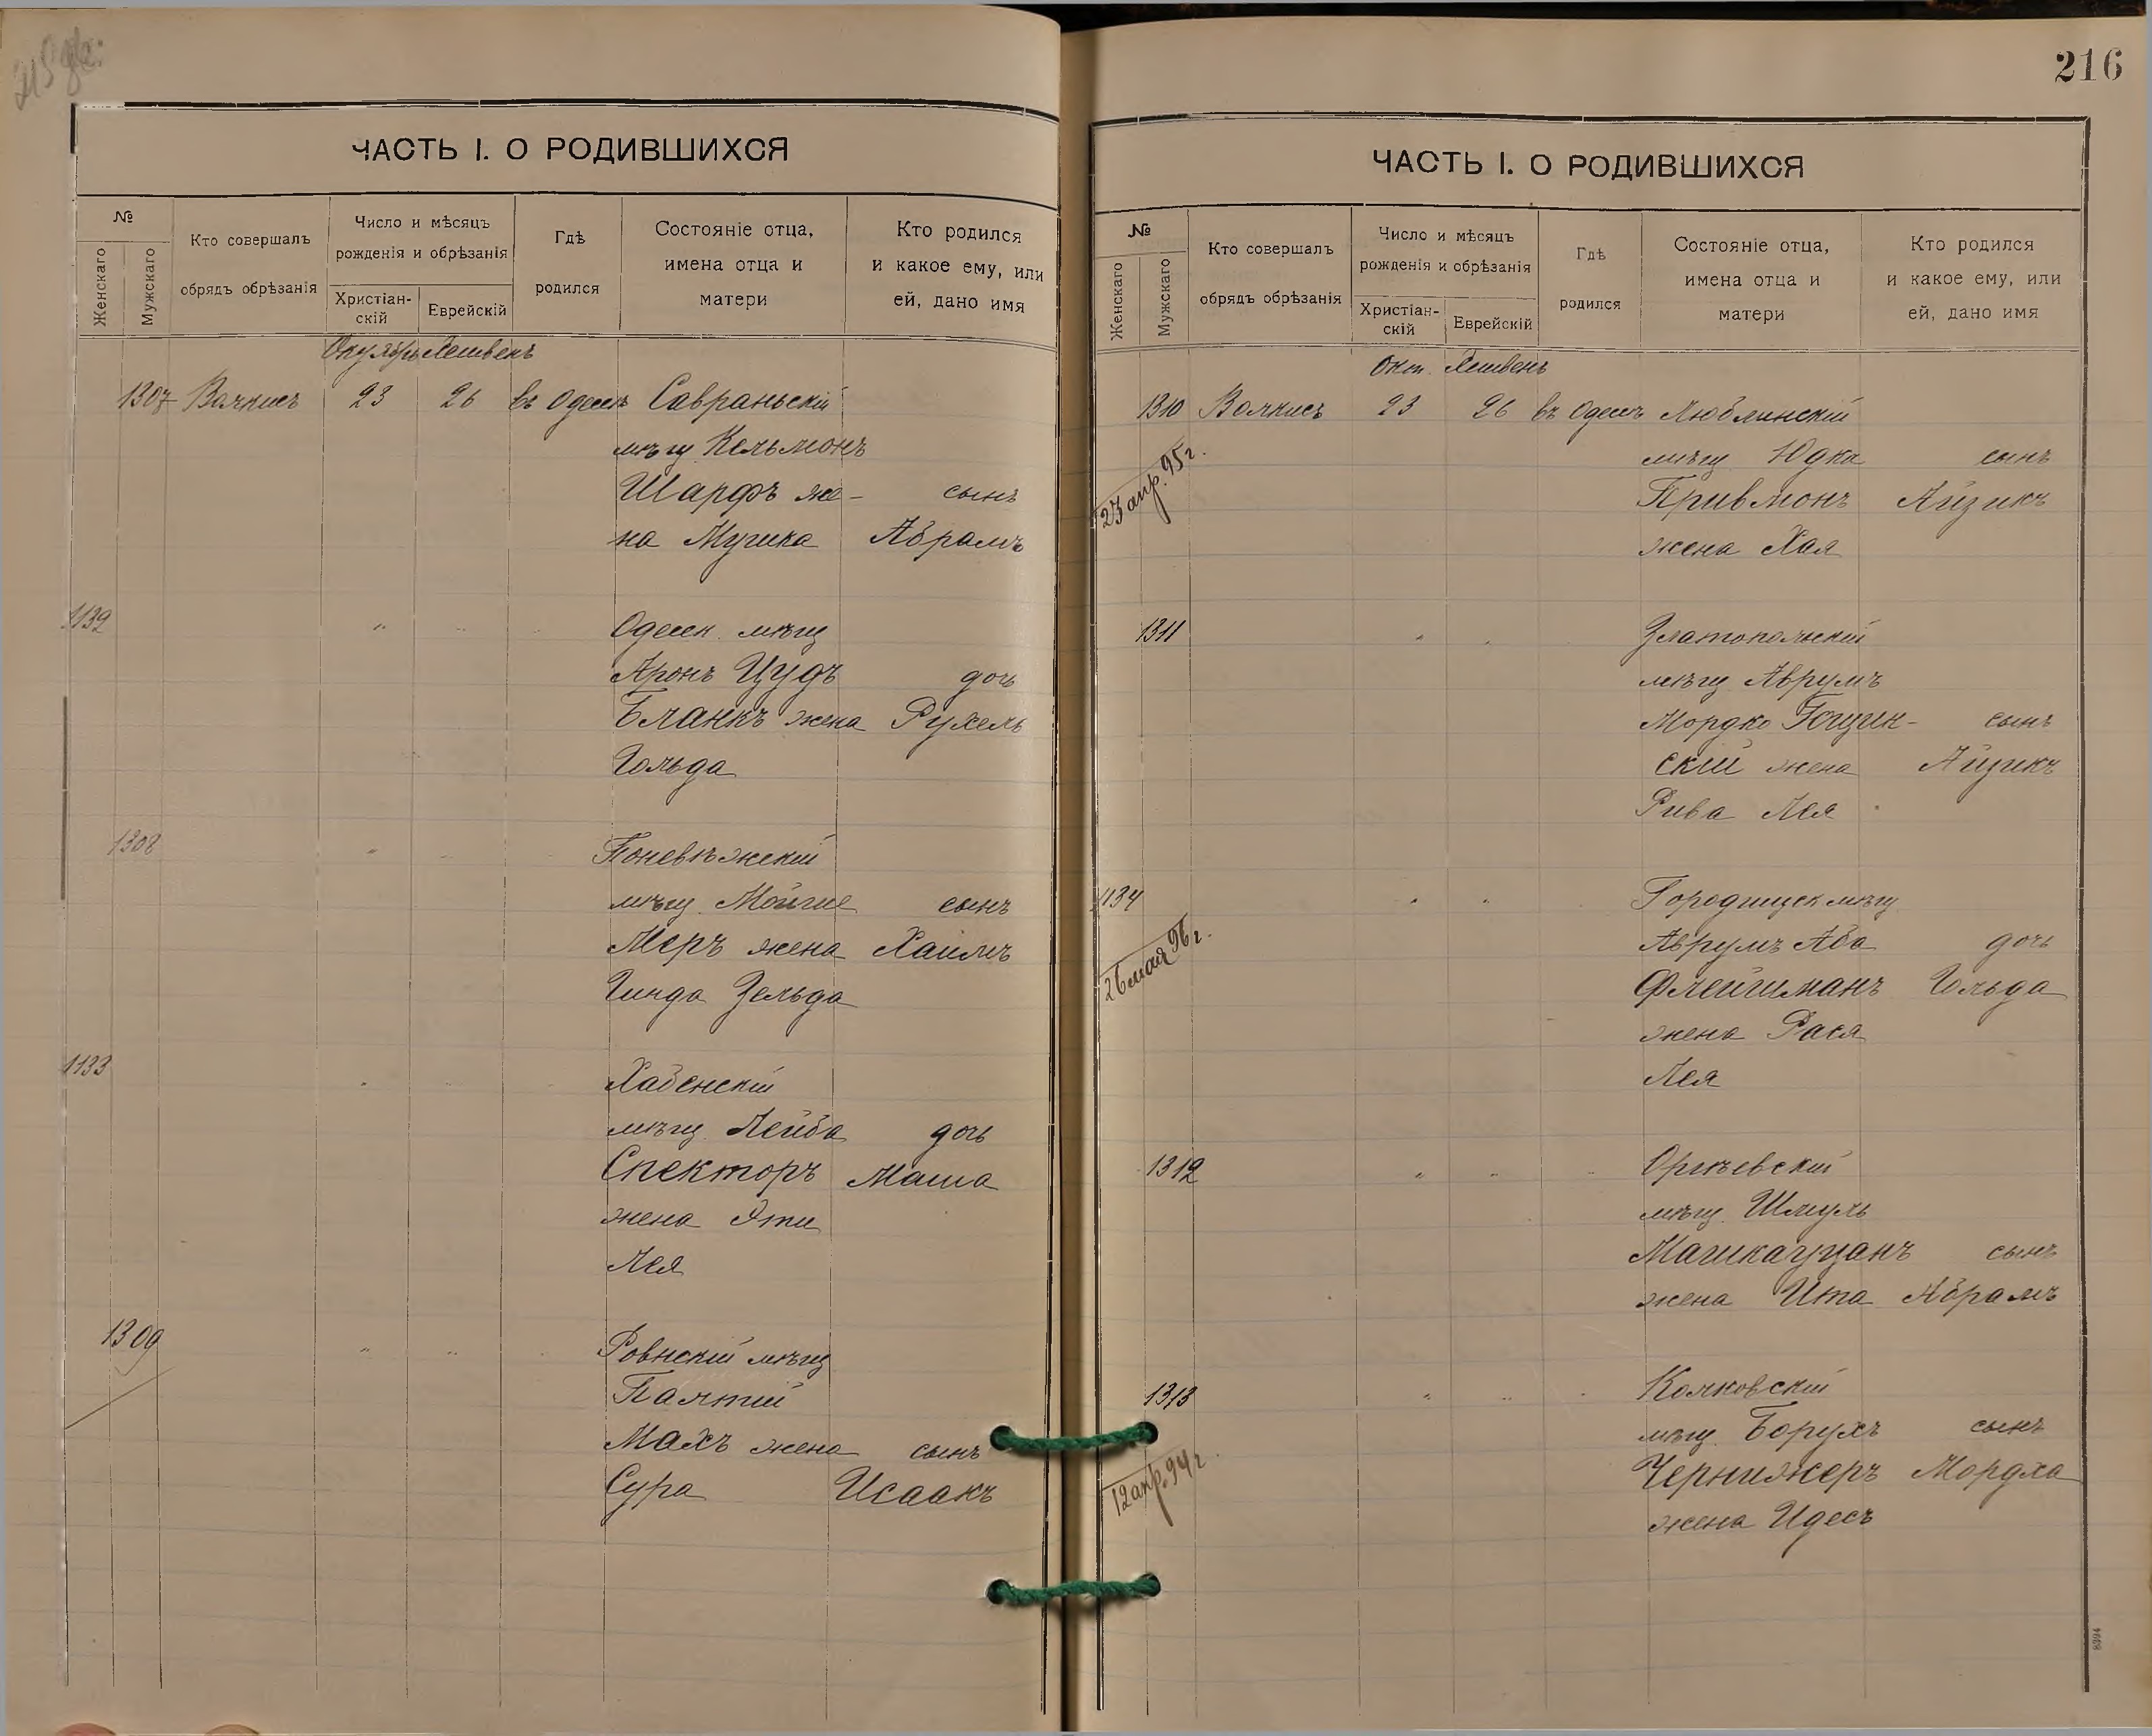 216
ЧАСТЬ I. О РОДИВШИХСЯ
№
Женскаго
Мужскаго
Кто совершалъ
обрядъ обрѣзанія
Число и мѣсяцъ
рожденія и обрѣзанія
Христіан-
скій
Еврейскій
Гдѣ
родился
Состояніе отца,
имена отца и
матери
Кто родился
и какое ему, или
ей, дано имя
Хешвенъ
1307 23 26 въ Одессѣ Савраньскій
мѣщ Кельмонъ
Шарфъ же- сынъ
на Абрамъ
1132 " " Одесск. мѣщ
Аронъ Цудъ дочь
Бланкъ жена Рухель
Гольда
1308 " " Поневѣжскій
мѣщ. сынъ
Меръ жена Хаимъ
Гинда Зельда
1133 " " Хабенскій
мѣщ. Лейба дочь
Спекторъ Маша
жена Эти
Лея
1309 " " Ровнскій мѣщ
Палтій
Махъ жена сынъ
Сура Исаакъ
ЧАСТЬ I. О РОДИВШИХСЯ
№
Женскаго
Мужскаго
Кто совершалъ
обрядъ обрѣзанія
Число и мѣсяцъ
рожденія и обрѣзанія
Христіан-
скій
Еврейскій
Гдѣ
родился
Состояніе отца,
имена отца и
матери
Кто родился
и какое ему, или
ей, дано имя
Окт. Хешвенъ
1310 23 26 въ Одессѣ Люблинскій
23 апр. 95 г.
мѣщ Юдка сынъ
Привмонъ Айзикъ
жена Хая
1311 " " Златопольскій
мѣщ Аврумъ
Мордко сынъ
скій жена Айзикъ
Рива Лея
1134 " " Городищск мѣщ
26 мая 96 г.
Аврумъ Аба дочь
Флейшманъ Гольда
жена Рася
Лея
1312 " " Оргѣевскій
мѣщ. Шмуль
Машкауцанъ сынъ
жена Ита Абрамъ
1313 " " Колковскій
мѣщ. Борухъ сынъ
12 апр. 94 г.
Чернижеръ Мордха
жена Идесъ
8394